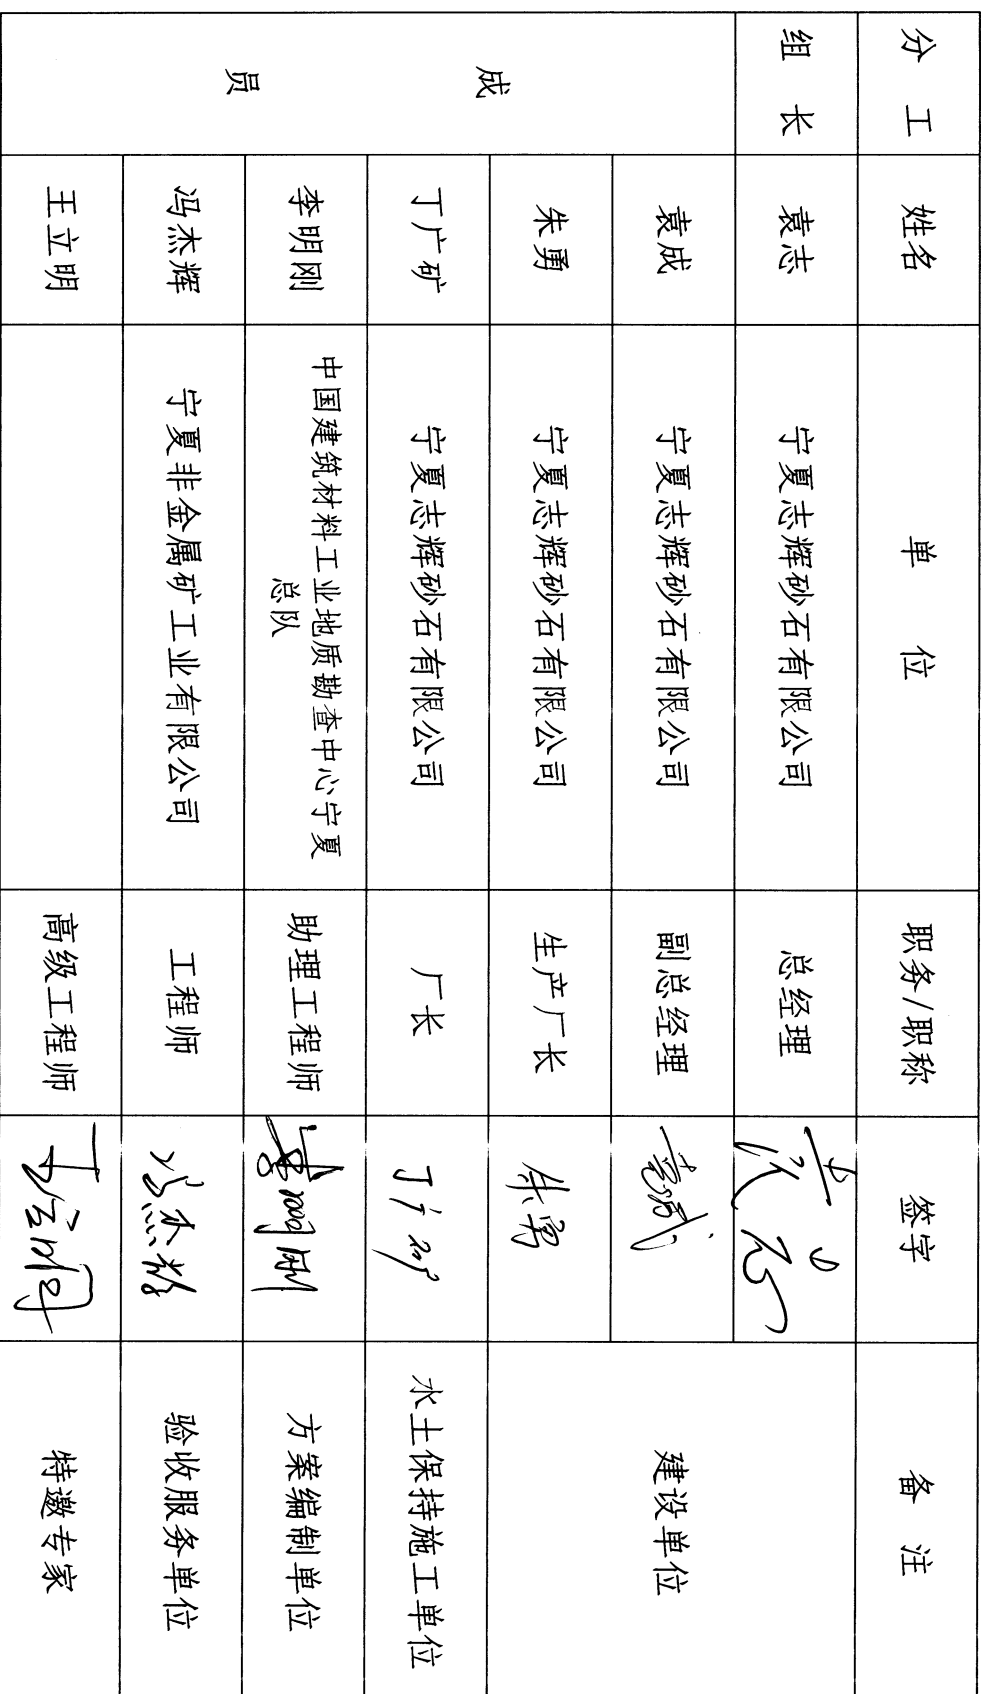 分工 姓名 单位 职务/职称 签字 备注
组长 袁志 宁夏志辉砂石有限公司 总经理 袁志 建设单位
成员 袁成 宁夏志辉砂石有限公司 副总经理 袁成
朱勇 宁夏志辉砂石有限公司 生产厂长 朱勇
丁广矿 宁夏志辉砂石有限公司 厂长 丁广矿 水土保持施工单位
李明刚 中国建筑材料工业地质勘查中心宁夏
总队 助理工程师 李明刚 方案编制单位
冯杰辉 宁夏非金属矿工业有限公司 工程师 冯杰辉 验收服务单位
王立明 高级工程师 王立明 特邀专家